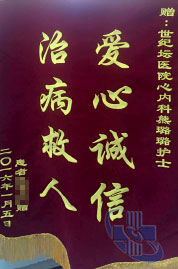 赠：世纪坛医院心内科熊璐璐护士
爱心诚信
治病救人
患者 赠
二〇一六年一月五日